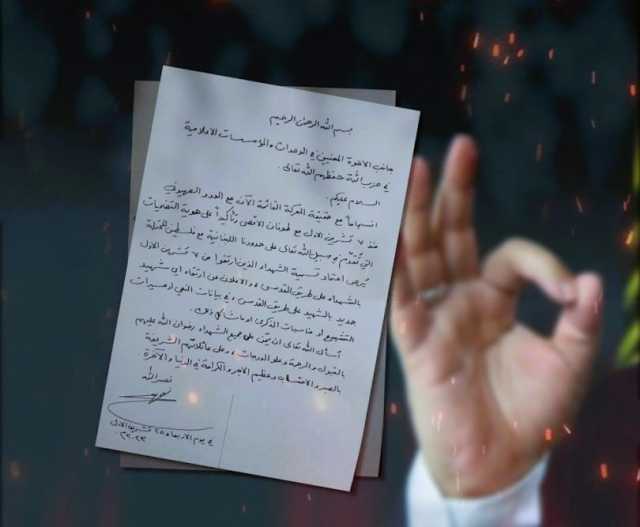 بسم الله الرحمن الرحيم
جانب الاخوة المعنيين في الوحدات والمؤسسات الاعلامية
في حزب الله حفظهم الله تعالى.
السلام عليكم.
انسجاماً مع حقيقة المعركة القائمة الآن مع العدو الصهيوني
منذ ٧ تشرين الاول مع طوفان الاقصى وتأكيداً على هوية التضحيات
التي تُقدَّم في سبيل الله تعالى على حدودنا اللبنانية مع فلسطين المحتلة
يُرجى اعتماد تسمية الشهداء الذين ارتقوا من ٧ تشرين الاول
بالشهداء على طريق القدس والاعلان عن ارتقاء اي شهيد
جديد بالشهيد على طريق القدس في بيانات النعي او مسيرات
التشييع او مناسبات الذكرى او ما شاكل ذلك.
أسأل الله تعالى ان يمنّ على جميع الشهداء رضوان الله عليهم
بالقبول والرحمة وعلو الدرجات وعلى عائلاتهم الشريفة
بالصبر والاحتساب وعظيم الاجر والكرامة في الدنيا والآخرة
نصرالله
في يوم الاربعاء ٢٥ تشرين الاول
٢٠٢٣